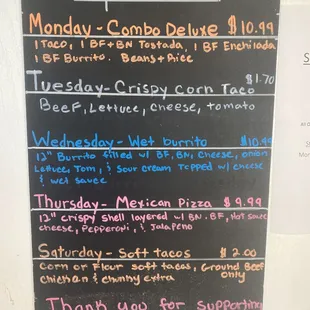 Monday - Combo Deluxe $10.99
1 Taco, 1 BF+BN Tostada, 1 BF Enchilada
1 BF Burrito. Beans + Rice
Tuesday - Crispy Corn Taco $1.70
Beef, Lettuce, cheese, tomato
Wednesday - Wet burrito $10.99
12" Burrito filled w/ BF, BN, Cheese, onion
Lettuce, Tom, & Sour cream Topped w/ cheese
& wet sauce
Thursday - Mexican Pizza $9.99
12" crispy shell layered w/ BN. BF, Hot sauce
cheese, Pepperoni, & Jalapeno
Saturday - Soft tacos $2.00
Corn or Flour soft tacos, Ground Beef
chicken & chunky extra only
Thank you for supporting